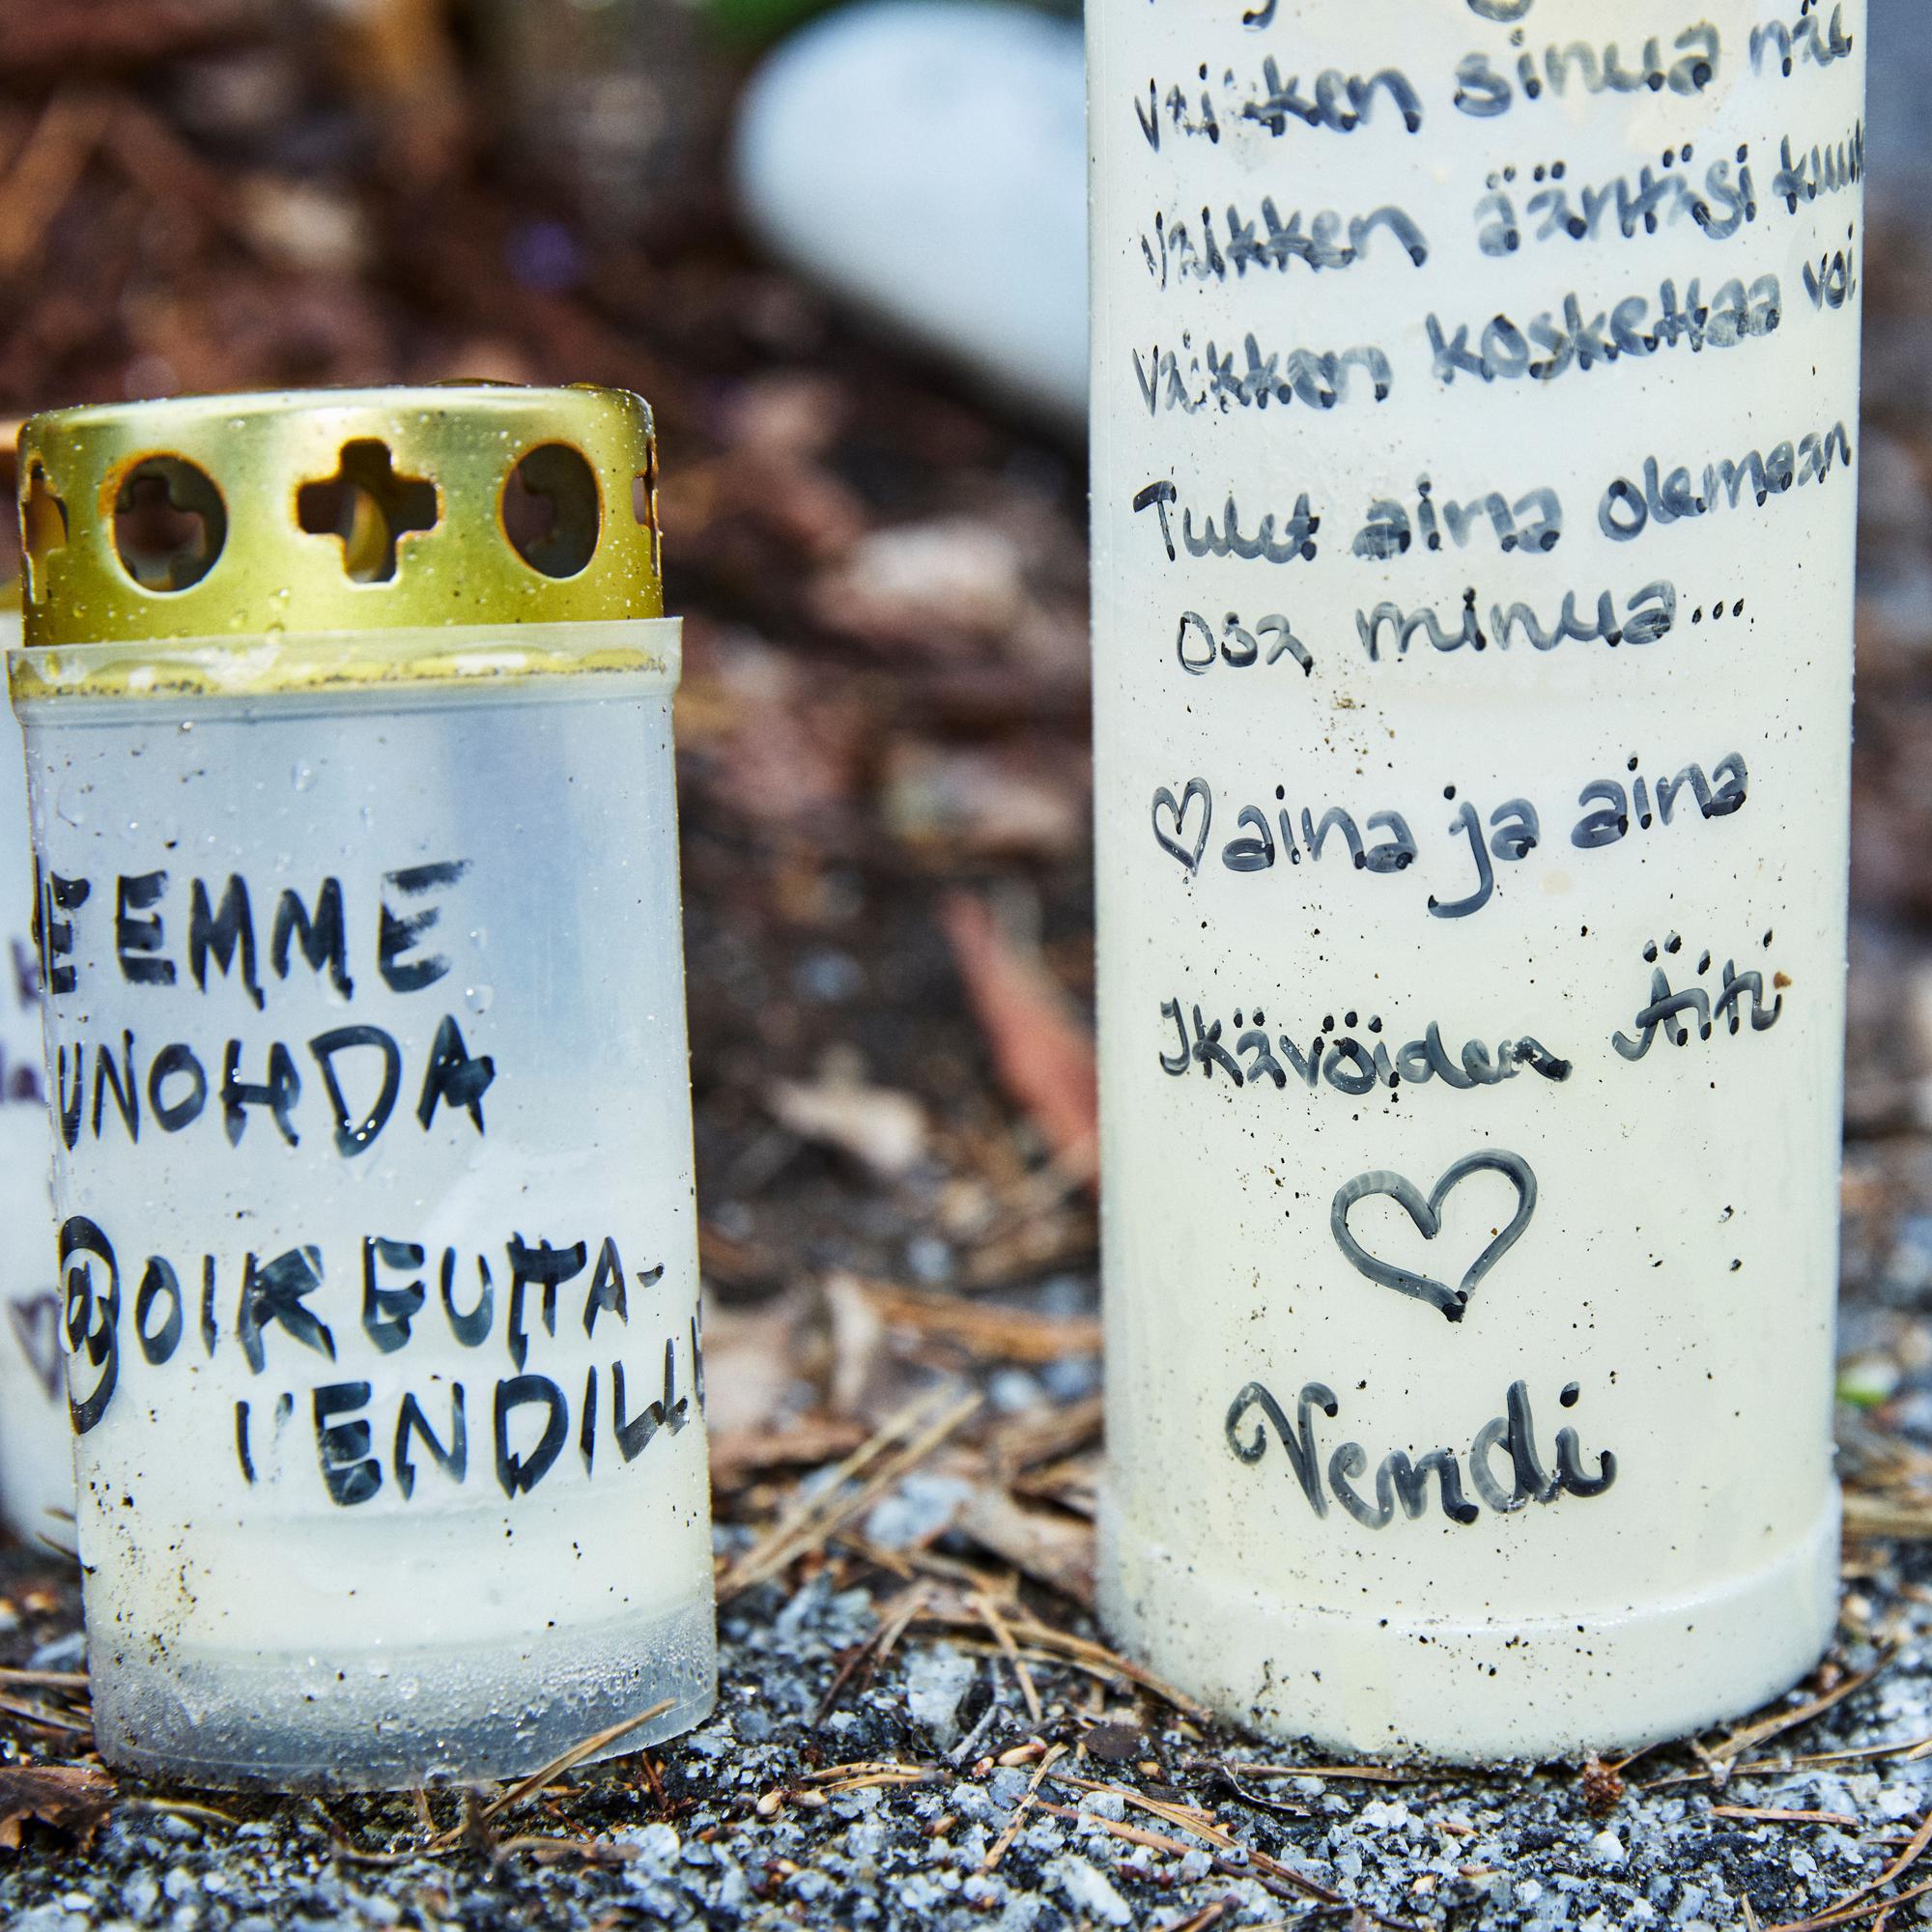 EMME
UNOHDA
@OIKEUTTA-
VENDILL
Vaikken sinua nä
Vaikken ääntäsi kuul
Vaikken koskettaa voi
Tulet aina olemaan
osa minua...
♡ aina ja aina
Ikävöiden Äiti
♡
Vendi